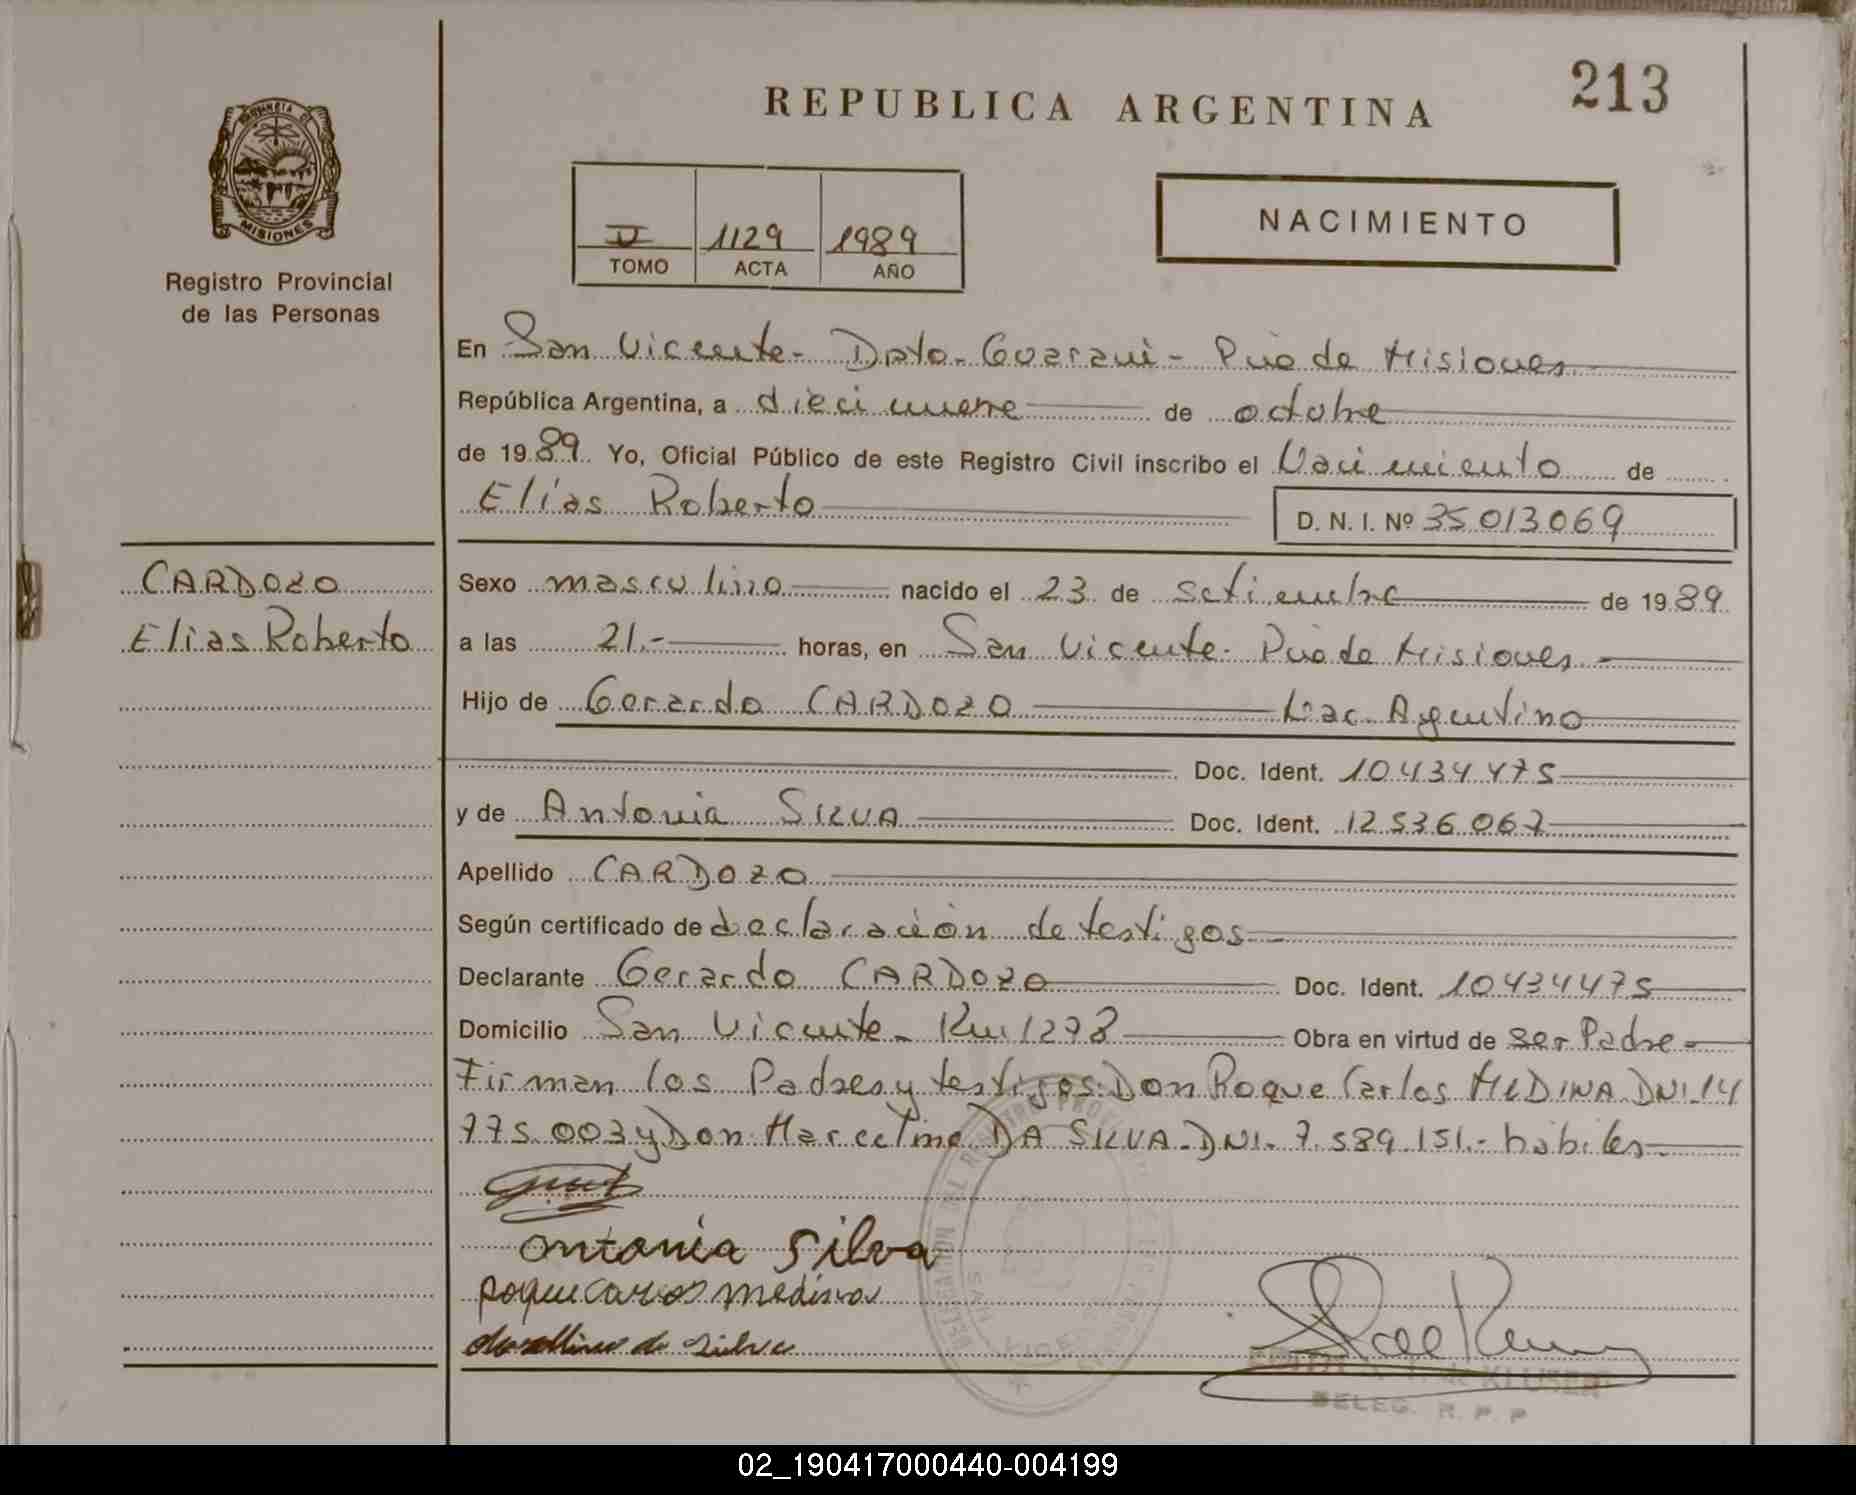 213
REPUBLICA ARGENTINA
PROVINCIA D
MISIONES
Registro Provincial
de las Personas
1129 1989
TOMO ACTA AÑO
NACIMIENTO
En San Vicente - Dpto - Guaraní - Pcia de Misiones
República Argentina, a diecinueve de octubre
de 1989. Yo, Oficial Público de este Registro Civil inscribo el Nacimiento de
Elías Roberto
D. N. I. Nº 35013069
CARDOZO
Elias Roberto
Sexo masculino nacido el 23 de setiembre de 1989
a las 21.- horas, en San Vicente - Pcia de Misiones -
Hijo de Gerardo CARDOZO Nac. Argentino
Doc. Ident. 10434475
y de Antonia SILVA Doc. Ident. 12.536.067
Apellido CARDOZO
Según certificado de declaración de testigos
Declarante Gerardo CARDOZO Doc. Ident. 10434475
Domicilio San Vicente - Km 1273 Obra en virtud de ser Padre -
Firman los Padres y testigos: Don Roque Carlos MEDINA DNI. 14
775.003 y Don Marcelino DA SILVA - DNI. 7.589.151.- hábiles
antonia Silva
roque carlos medina
da silva
DELEGACION DEL REGISTRO PROV
SAN VICENTE
KLUSER
DELEG. R. P. P
02_190417000440-004199